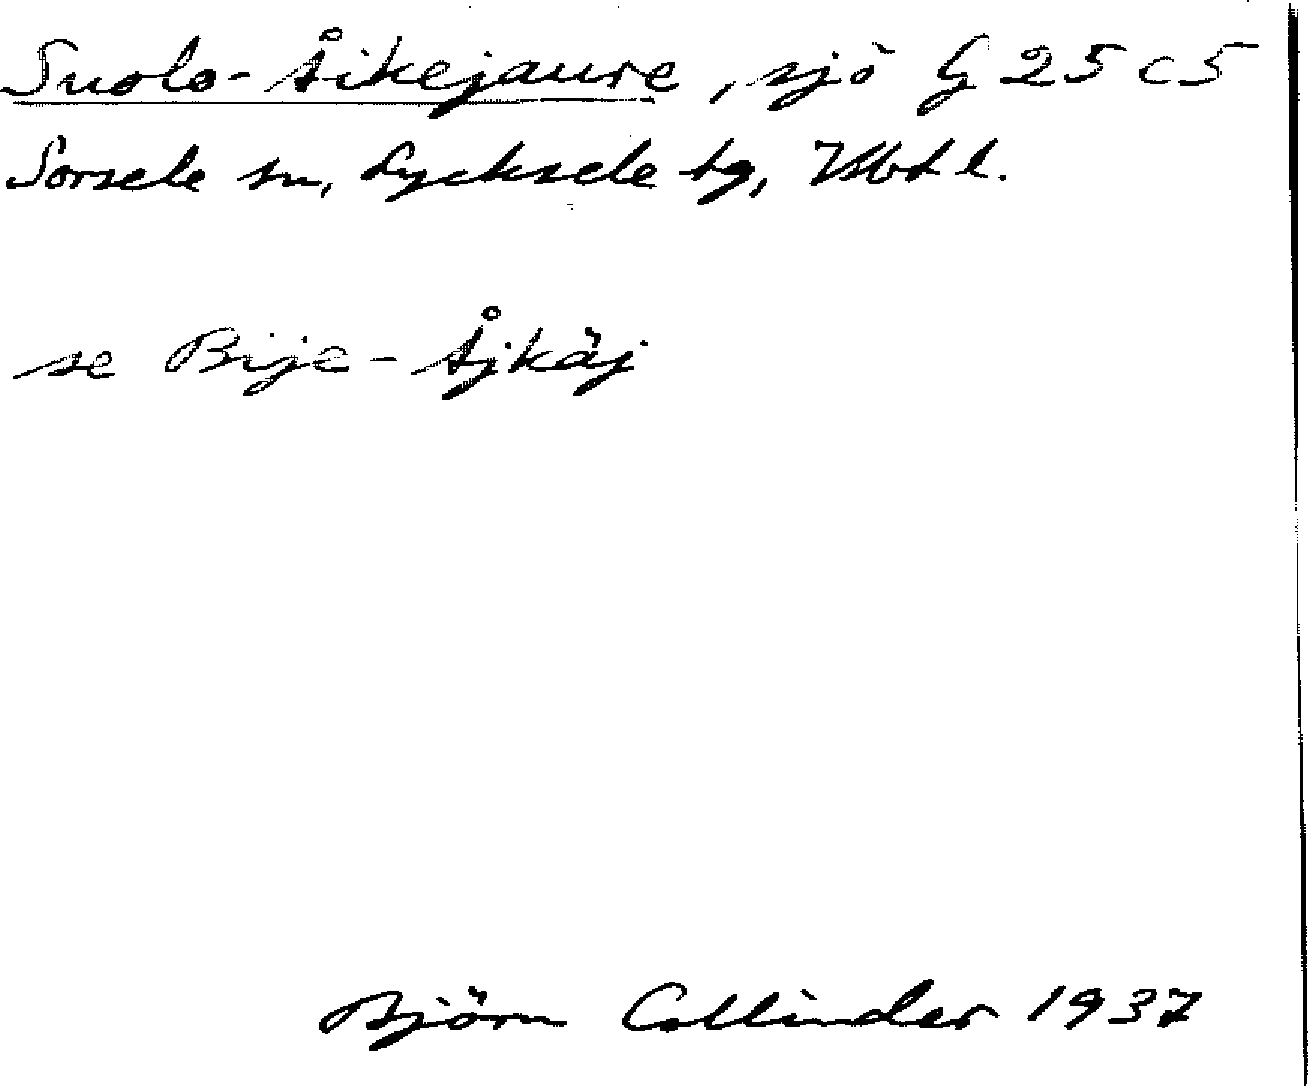 Suolo-Åikejaure, sjö G 25 c 5
Sorsele sn, Lycksele tg, Vbtl.
se Bije-Åjkäj
Björn Collinder 1937